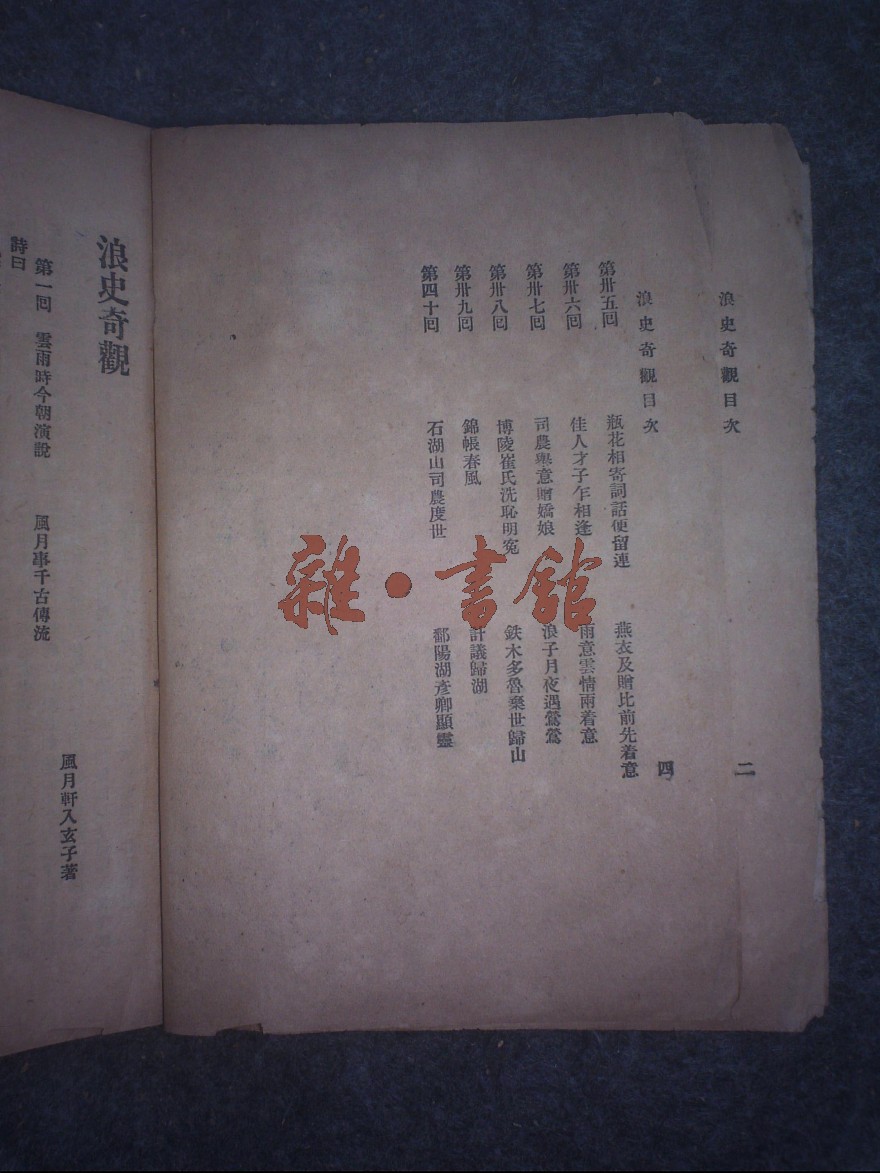 浪史奇觀目次
二
浪史奇觀目次
四
第卅五囘 瓶花相寄詞話便留連 燕衣及贈比前先着意
第卅六囘 佳人才子乍相逢 雨意雲情兩着意
第卅七囘 司農舉意贈嬌娘 浪子月夜遇鶯鶯
第卅八囘 博陵崔氏洗恥明冤 鉄木多魯棄世歸山
第卅九囘 錦帳春風 計議歸湖
第四十囘 石湖山司農度世 鄱陽湖彥卿顯靈
雜·書館
浪史奇觀
風月軒入玄子著
第一囘 雲雨時今朝演說 風月事千古傳流
詩曰